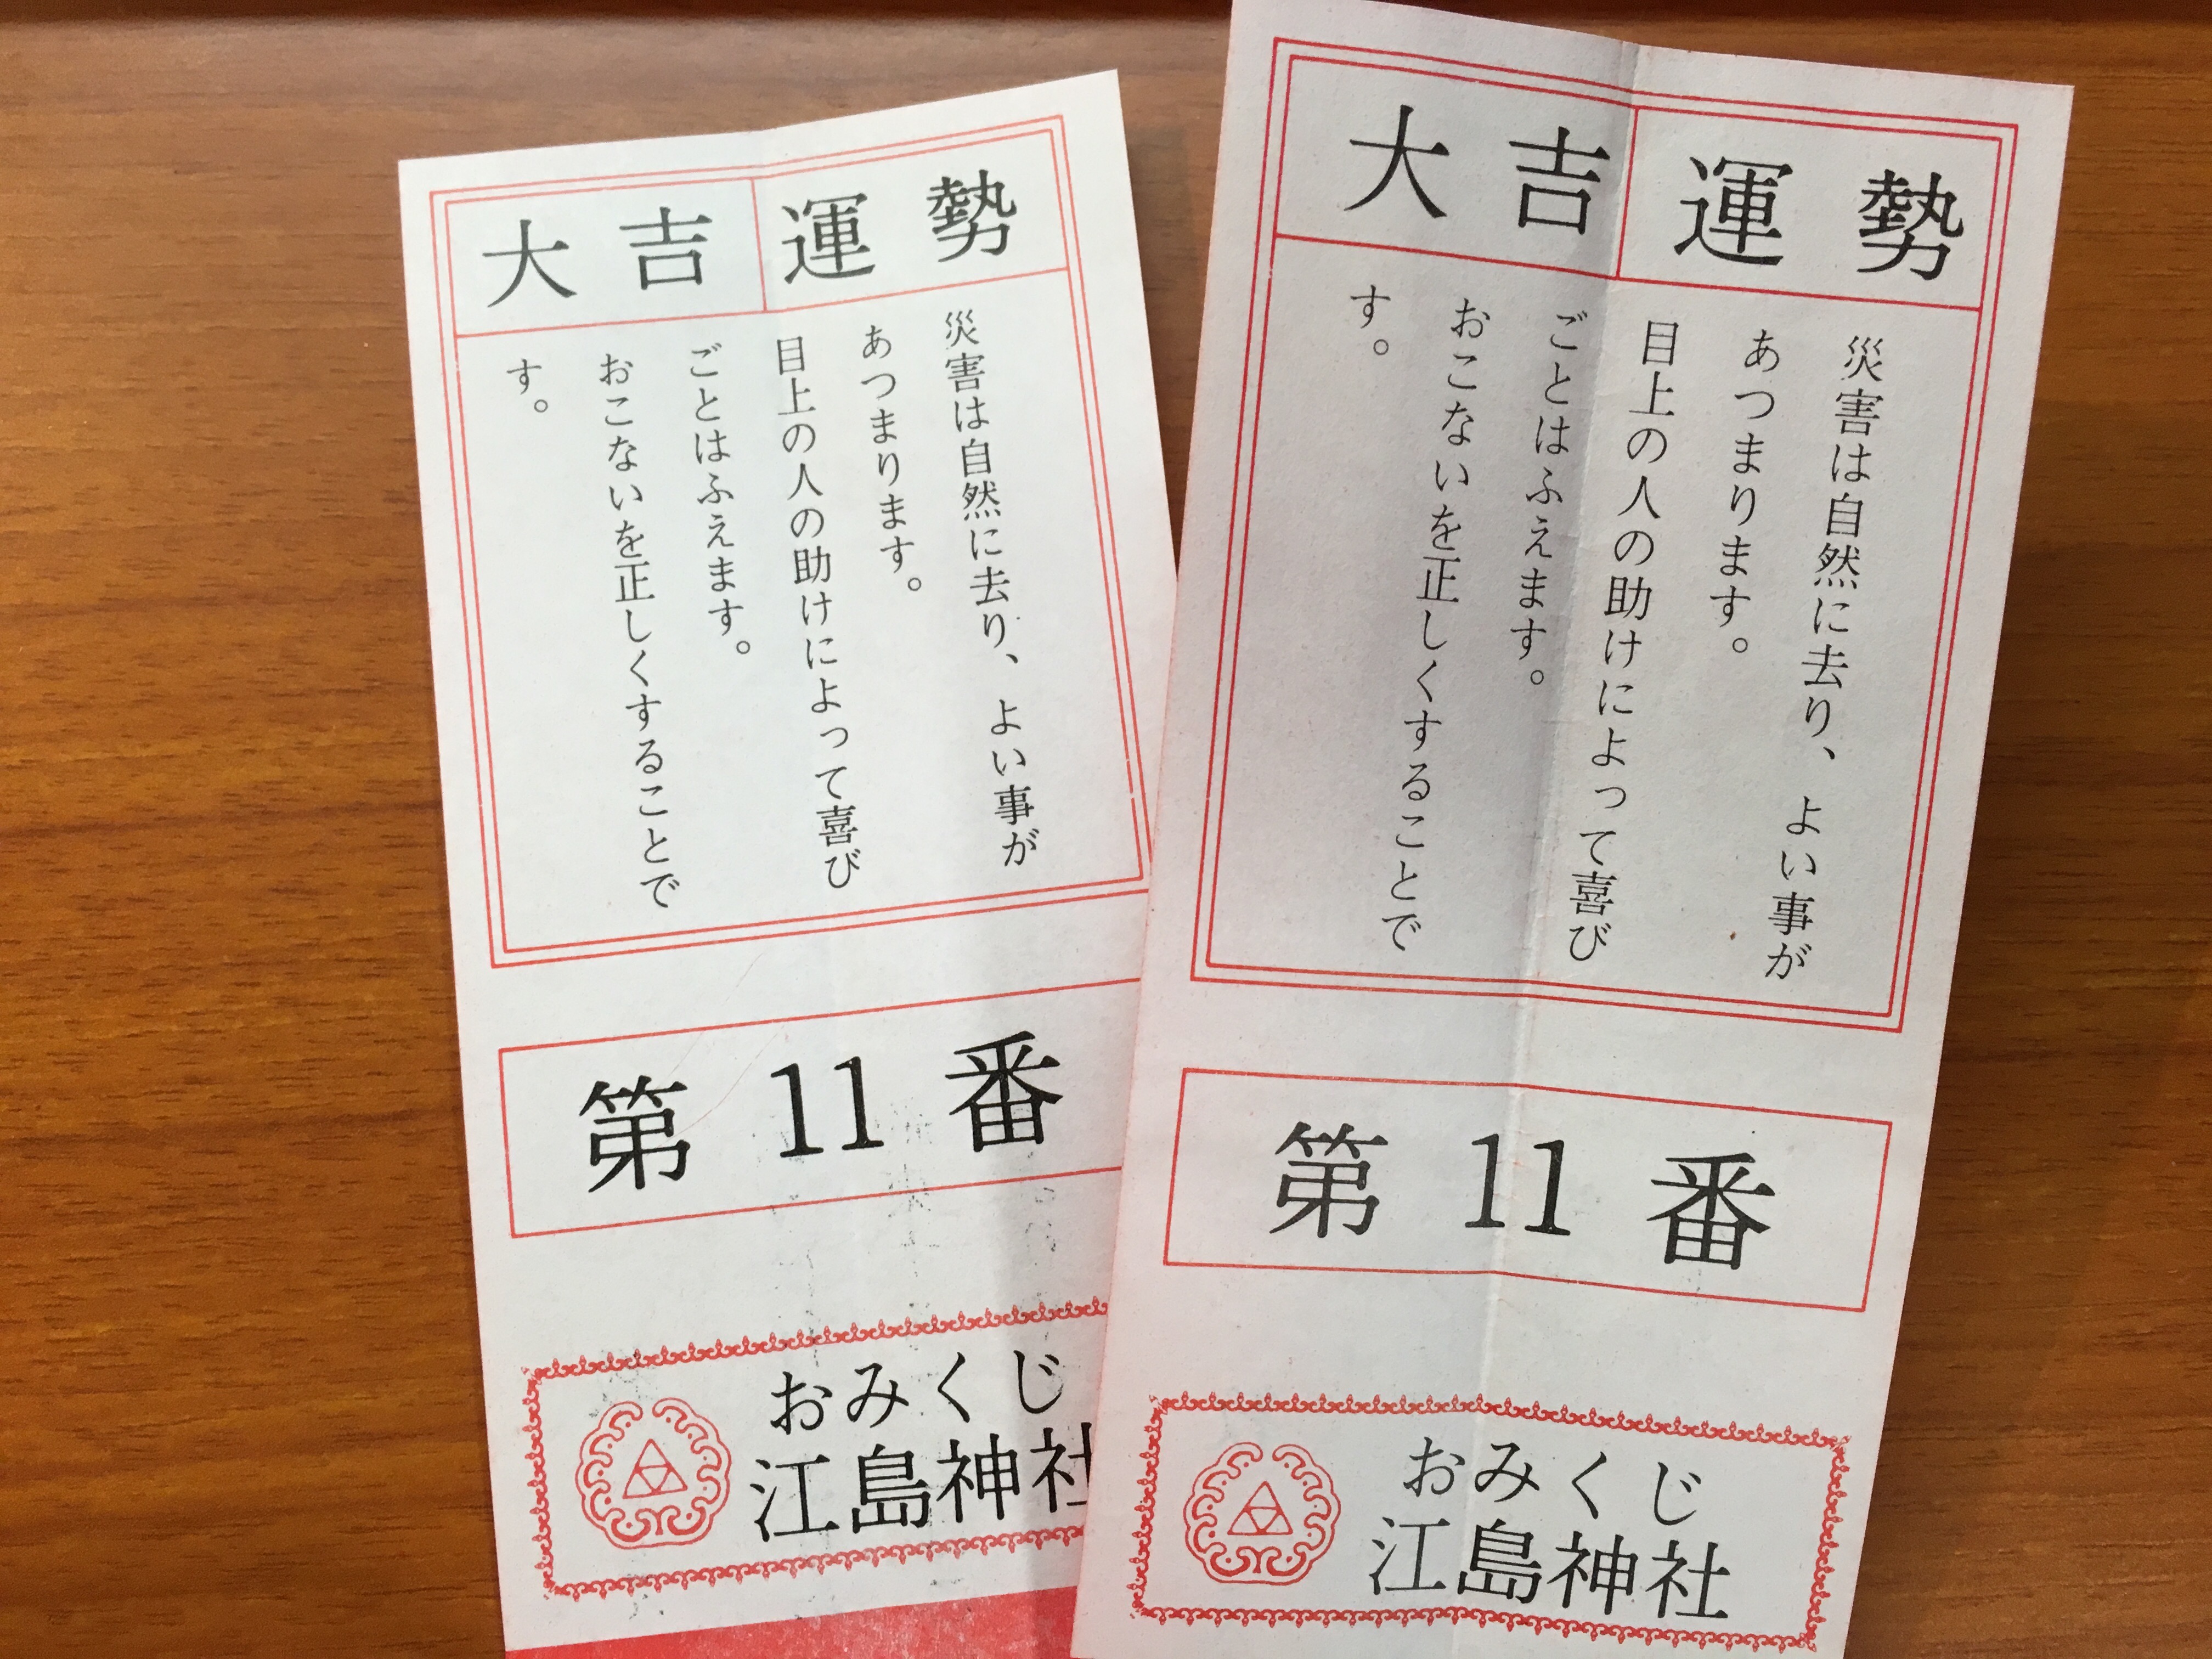 大吉運勢
災害は自然に去り、よい事が
あつまります。
目上の人の助けによって喜び
ごとはふえます。
おこないを正しくすることで
す。
第11番
おみくじ
江島神社
大吉運勢
災害は自然に去り、よい事が
あつまります。
目上の人の助けによって喜び
ごとはふえます。
おこないを正しくすることで
す。
第11番
おみくじ
江島神社